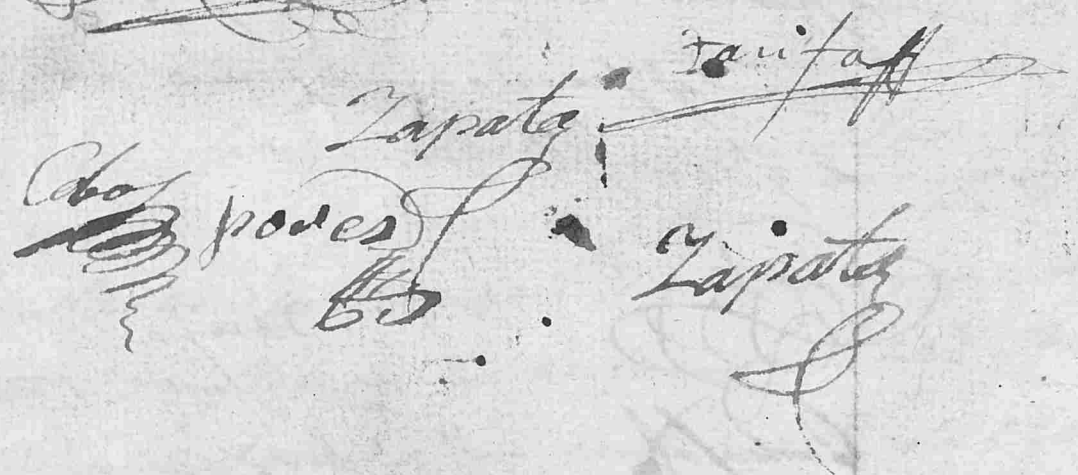 Tarifa
Zapata
Cobos poves
Zapata